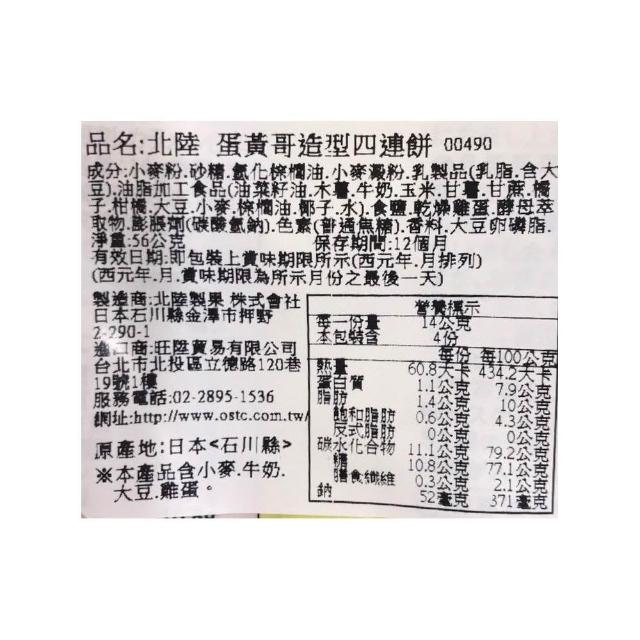 品名:北陸 蛋黃哥造型四連餅 00490
成分:小麥粉.砂糖.氫化棕櫚油.小麥澱粉.乳製品(乳脂.含大
豆).油脂加工食品(油菜籽油.木薯.牛奶.玉米.甘薯.甘蔗.橘
子.柑橘.大豆.小麥.棕櫚油.椰子.水).食鹽.乾燥雞蛋.酵母萃
取物.膨脹劑(碳酸氫鈉).色素(普通焦糖).香料.大豆卵磷脂.
淨重:56公克 保存期間:12個月
有效日期:即包裝上賞味期限所示(西元年.月排列)
(西元年.月.賞味期限為所示月份之最後一天)
製造商:北陸製菓 株式會社
日本石川縣金澤市押野
2-290-1
進口商:旺陞貿易有限公司
台北市北投區立德路120巷
19號1樓
服務電話:02-2895-1536
網址:http://www.ostc.com.tw/
原產地:日本<石川縣>
※本產品含小麥.牛奶.
大豆.雞蛋。
營養標示
每一份量 14公克
本包裝含 4份
每份 每100公克
熱量 60.8大卡 434.2大卡
蛋白質 1.1公克 7.9公克
脂肪 1.4公克 10公克
飽和脂肪 0.6公克 4.3公克
反式脂肪 0公克 0公克
碳水化合物 11.1公克 79.2公克
糖 10.8公克 77.1公克
膳食纖維 0.3公克 2.1公克
鈉 52毫克 371毫克